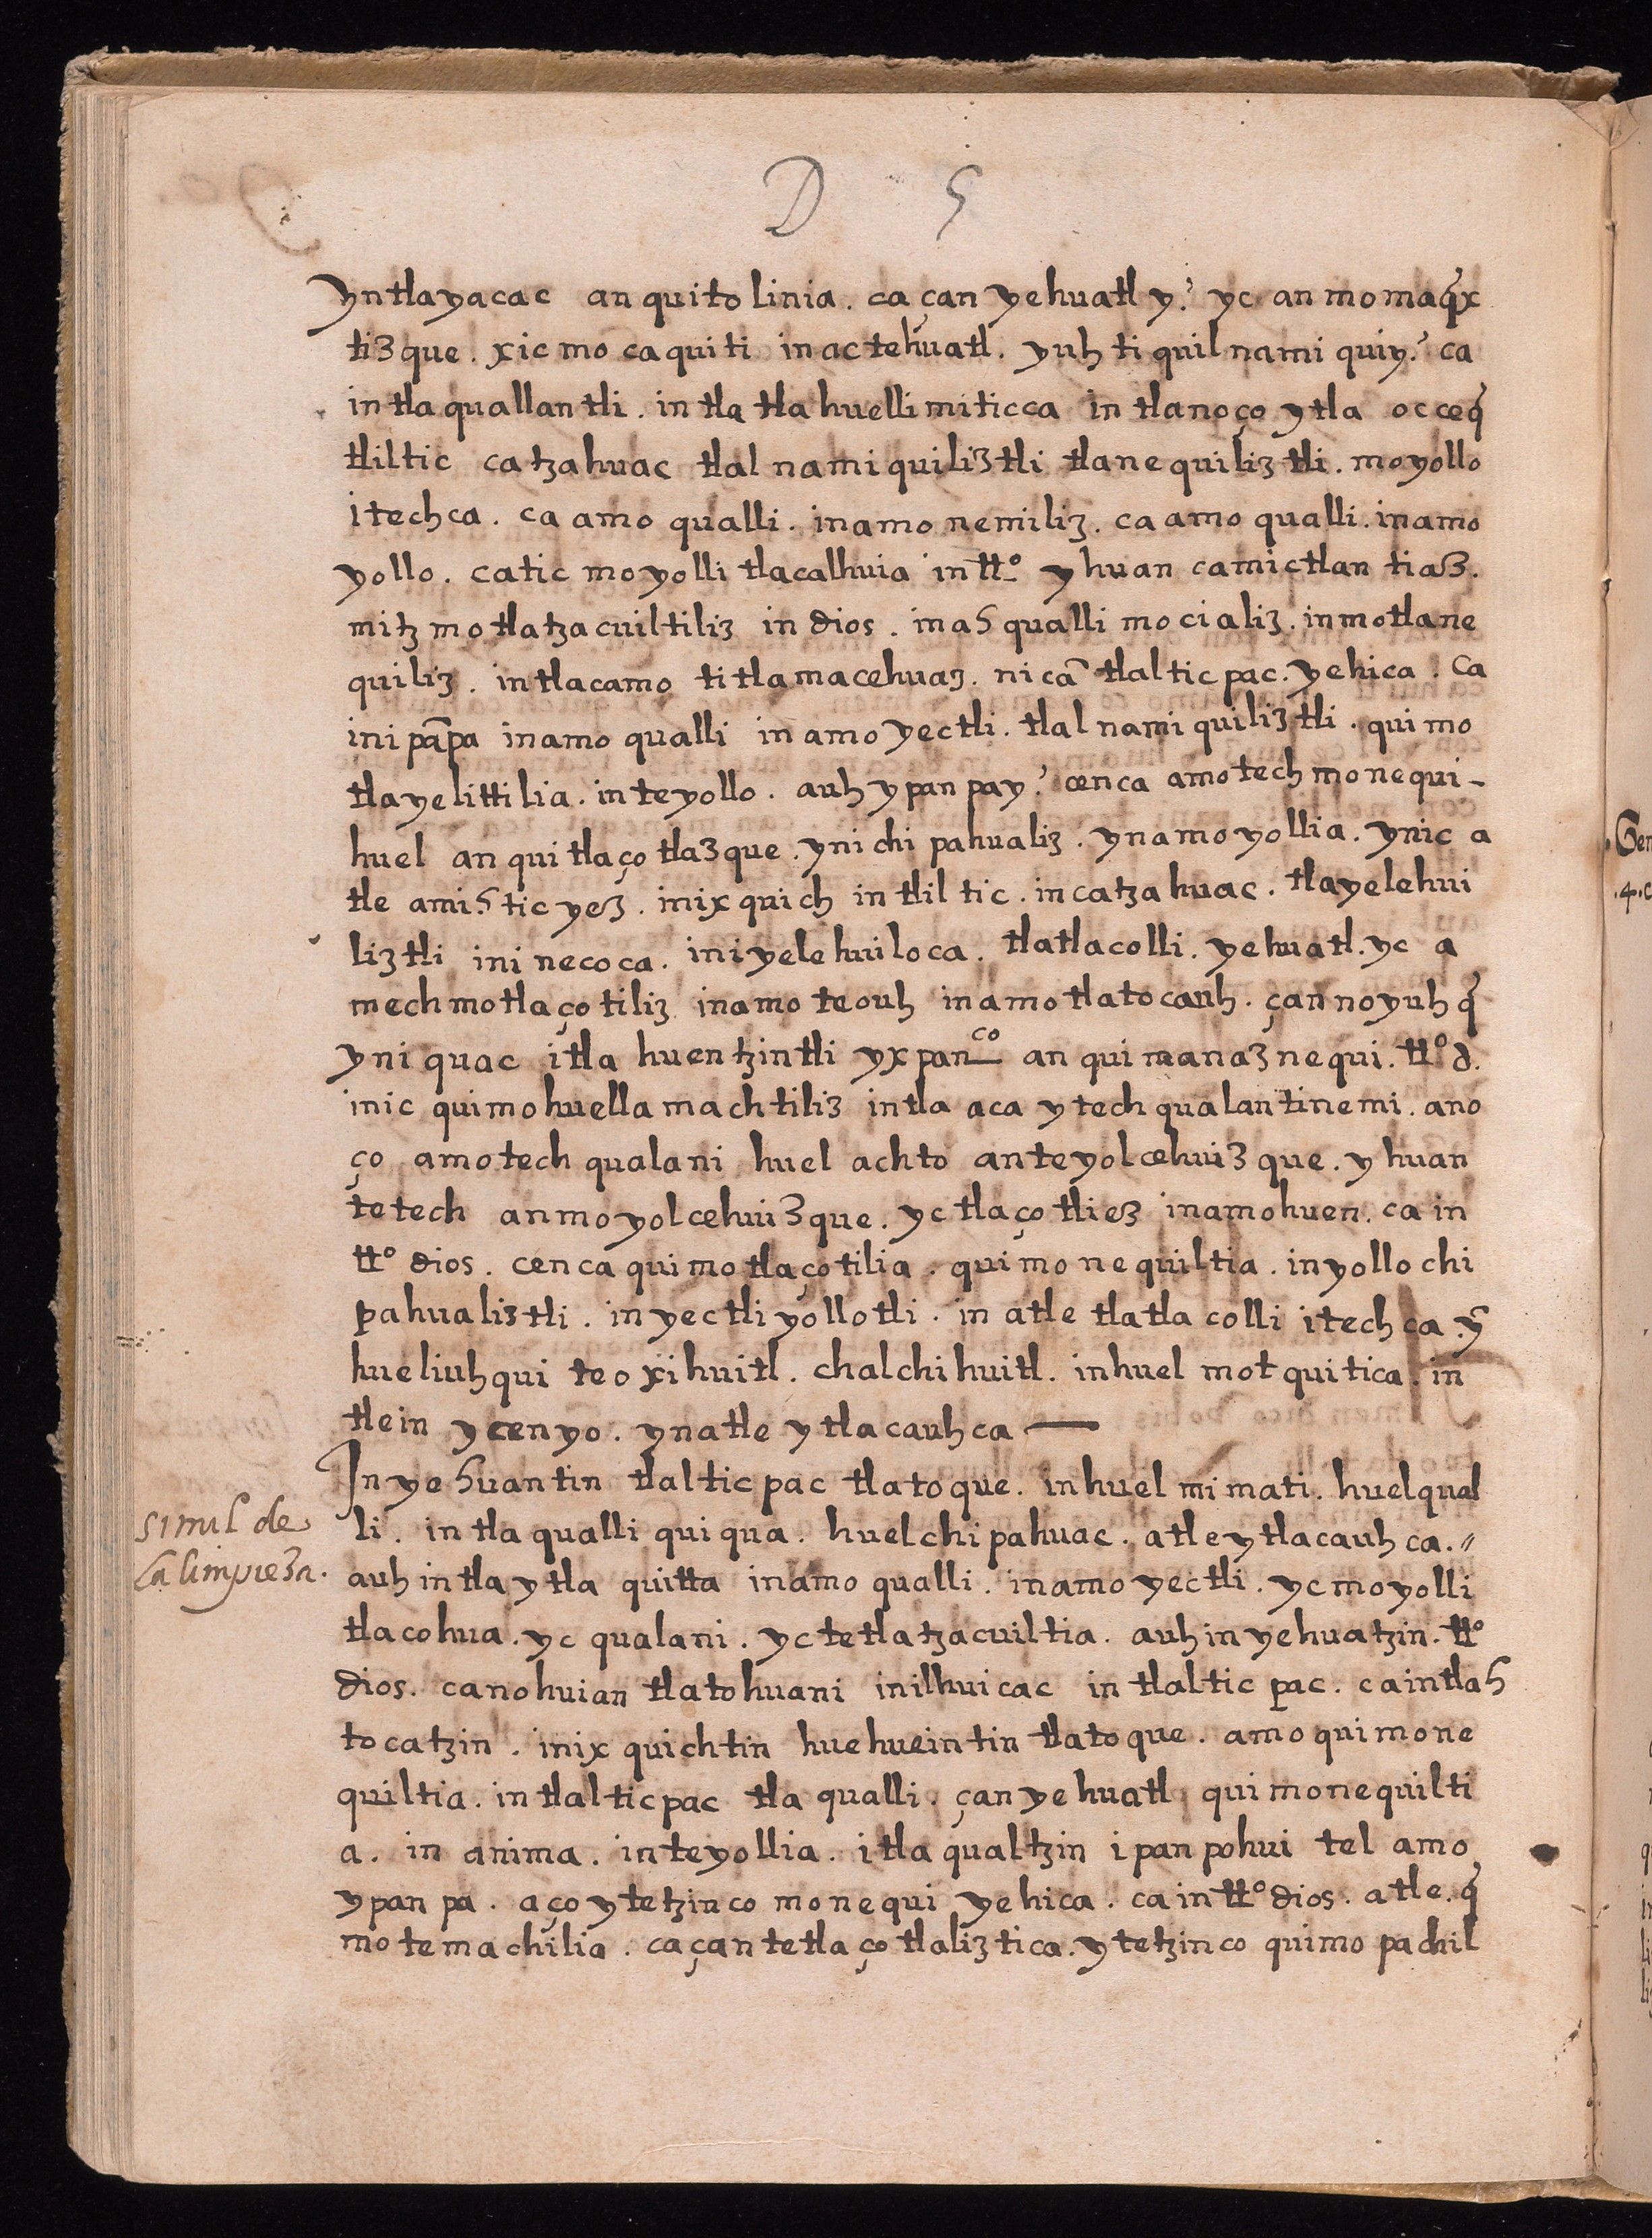 D S
yntlayacac anquitolinia. ca çan yehuatl y.’ yc anmomaq̃x
tizque. xicmocaquiti in ac tehuatl. yuh tiquilnamiqui y.’ ca
intla quallantli. intla tlahuelli miticca intlanoço ytla occeq̃
tliltic catzahuac tlalnamiquiliztli tlanequiliztli. moyollo
itechca. ca amo qualli. in amonemiliz. ca amo qualli. in amo
yollo. ca ticmoyollitlacalhuia in tt.º yhuan ca mictlan tiaz.
mitzmotlatzacuiltiliz in dios. in ahqualli mocializ. in motlane
quiliz. intlacamo titlamacehuaz. nicã tlalticpac. yehica. ca
in ipãpa in amo qualli in amo yectli. tlalnamiquiliztli. quimo
tlayelittilia. in teyollo. auh ypanpa y.’ cenca amotech monequi-
huel anquitlaçotlazque. yn ichipahualiz. yn amoyollia. ynic a
tle amihtic yez. in ixquich in tliltic. in catzahuac. tlayelehui
liztli in inecoca. in iyelehuiloca. tlatlacolli. yehuatl. yc a
mechmotlaçotiliz in amoteouh in amotlatocauh. çan no yuh q̃
yn iquac itla huentzintli yxpanco anquimanaznequi. tt.º d.
inic quimohuellamachtiliz intla aca ytech qualantinemi. ano
ço amotech qualani huel achto anteyolcehuizque. yhuan
tetech anmoyolcehuizque. yc tlaçotliez in amohuen. ca in
tt.º dios. cenca quimotlaçotilia. quimonequiltia. in yollochi
pahualiztli. in yectli yollotli. in atle tlatlacolli itech ca. ỹ
huel iuhqui teoxihuitl. chalchihuitl. in huel motquitica. in
tlein ycenyo. yn atle ytlacauhca —
In yehuantin tlalticpac tlatoque. in huel mimati. huel qual
li. in tlaqualli quiqua. huel chipahuac. atle ytlacauhca. //
simil de
la limpieza.
auh intla ytla quitta in amo qualli. in amo yectli. yc moyolli
tlacohua. yc qualani. yc tetlatzacuiltia. auh in yehuatzin. tt.º
dios. ca nohuian tlatohuani in ilhuicac in tlalticpac. ca intlah
tocatzin. in ixquichtin huehueintin tlatoque. amo quimone
quiltia. in tlalticpac tlaqualli. çan yehuatl quimonequilti
a. in anima. in teyollia. itlaqualtzin ipan pohui tel amo
ypanpa. aço ytetzinco monequi yehica. ca in tt.º dios. atle. q̃
motemachilia. ca çan tetlaçotlaliztica. ytetzinco quimopachil